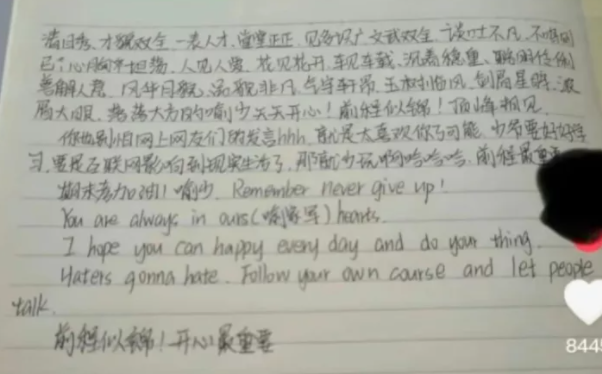 清目秀、才貌双全、一表人才、堂堂正正、见多识广、文武双全、谈吐不凡、不
己、心胸坦荡、人见人爱、花见花开、车见车载、沉着稳重、聪明伶俐
善解人意、风华月貌、酒貌非凡、气宇轩昂、玉树临风、剑眉星眸、浓
眉大眼、落落大方的喻少天天开心！前程似锦！顶峰相见
你也别怕网上网友们的发言hhh，就是太喜欢你了可能，少爷要好好学
习，要是互联网影响到现实生活了，那就少玩啊哈哈哈，前程最重要
期末考加油！喻少．Remember never give up!
You are always in ours(喻家军)hearts.
I hope you can happy every day and do your thing.
Haters gonna hate. Follow your own course and let people
talk.
前程似锦！开心最重要
8445